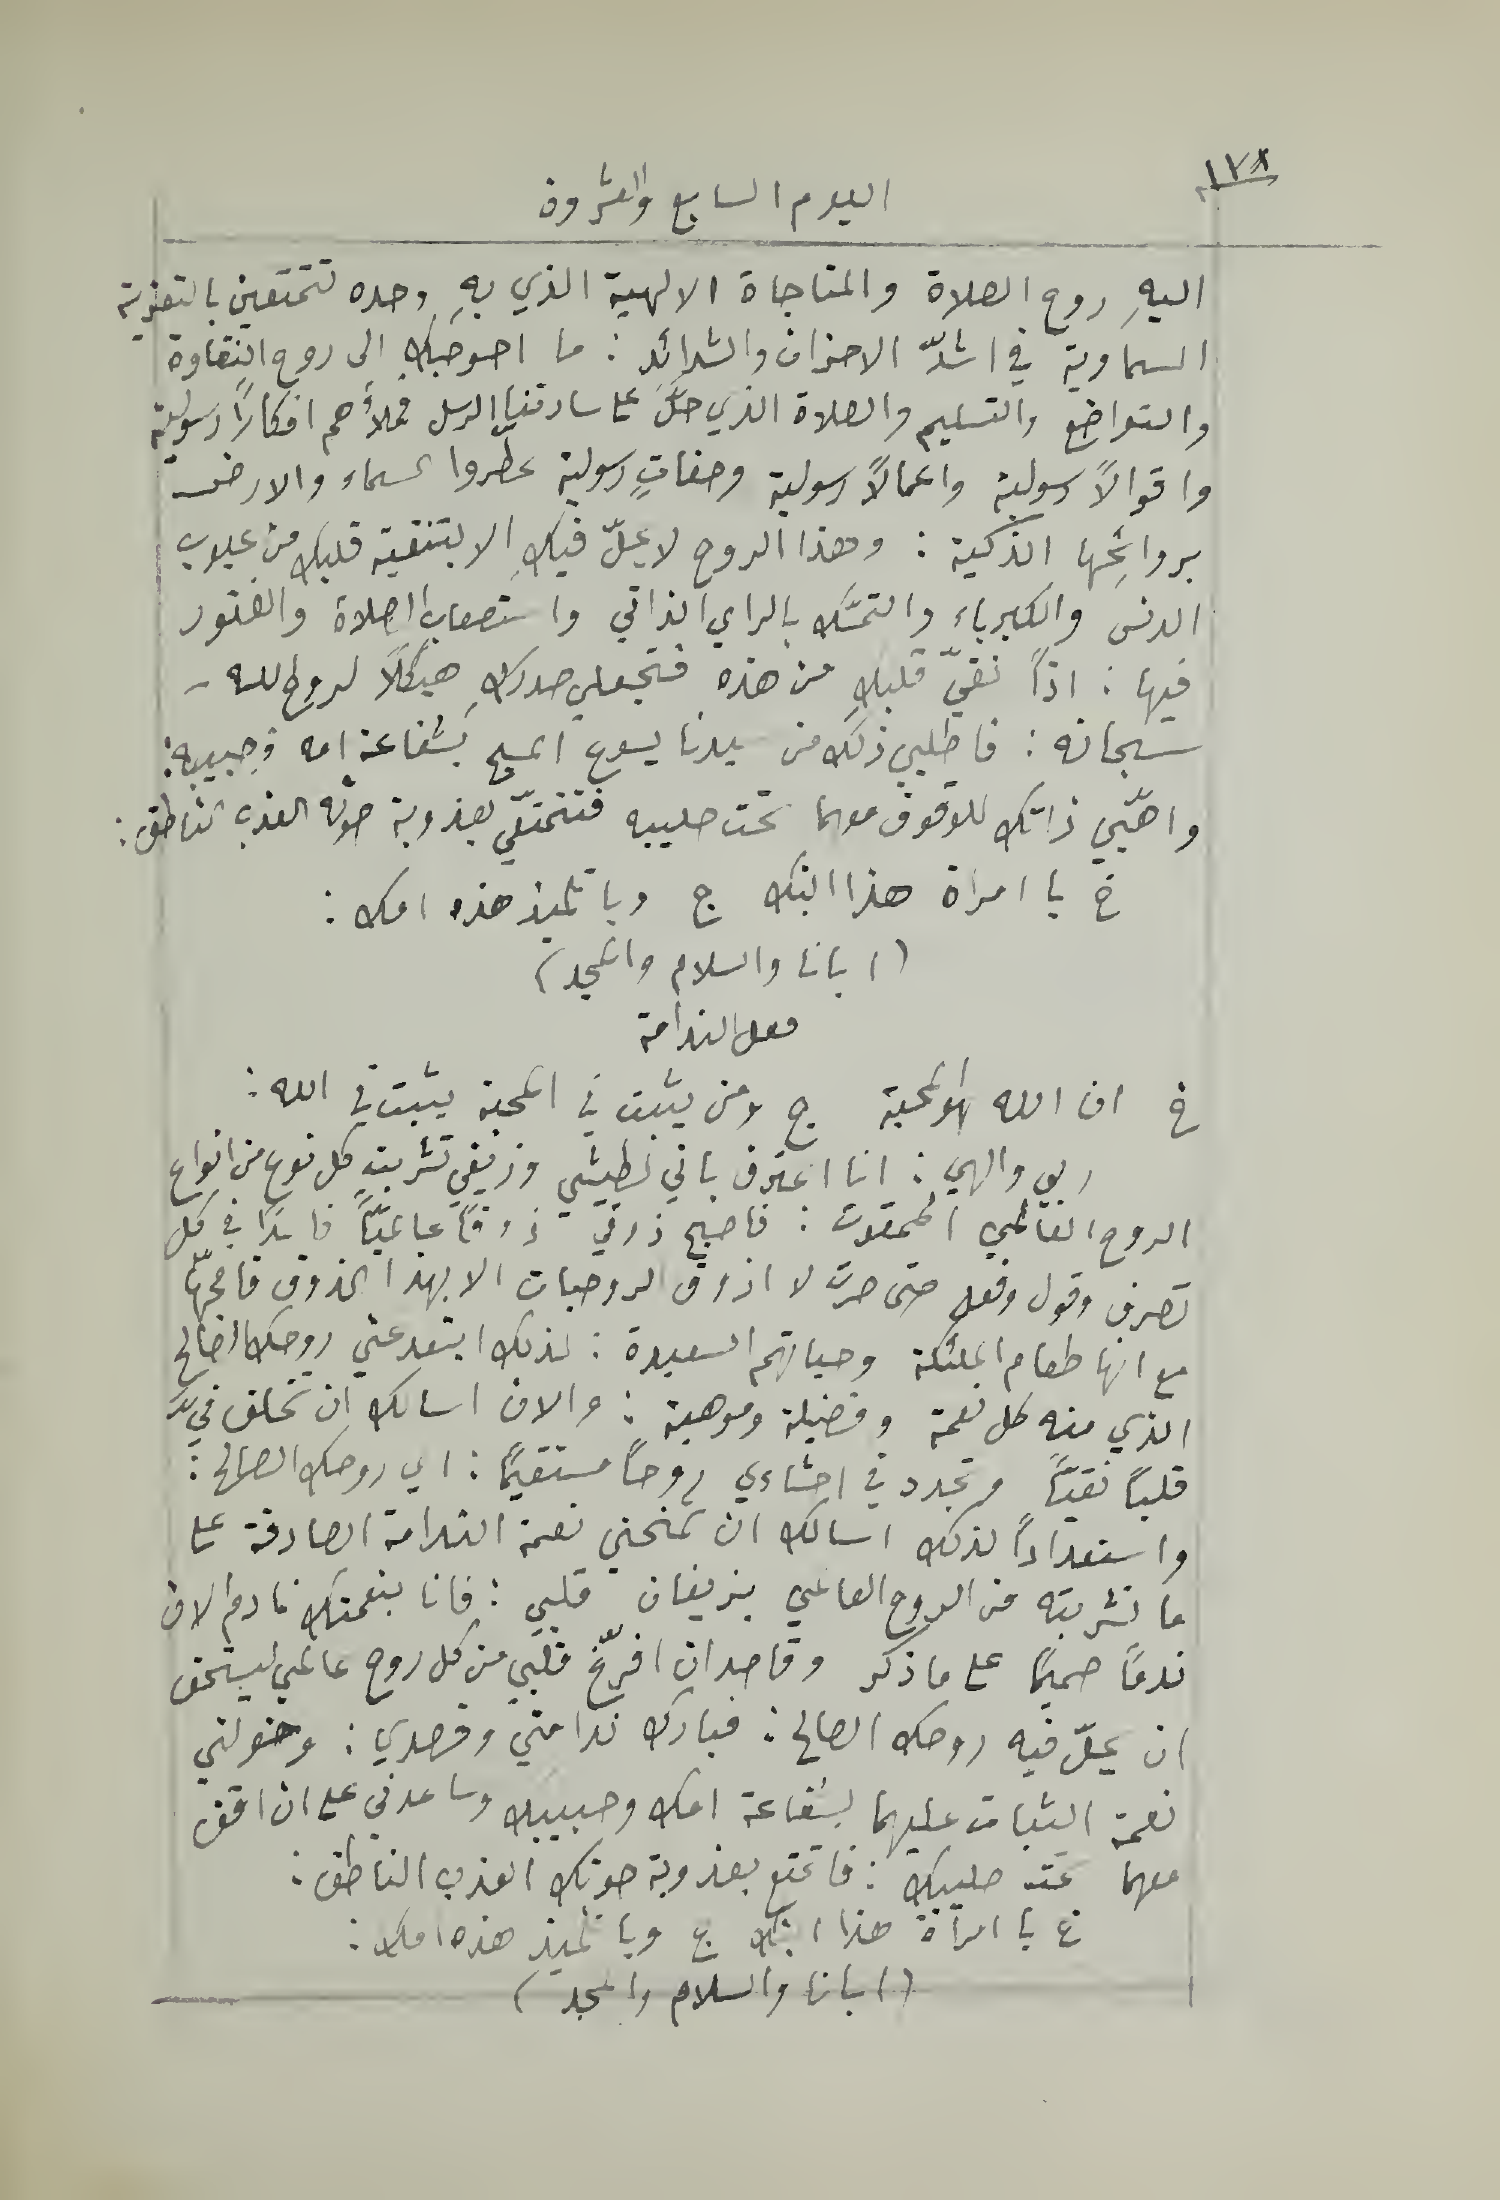 ١٧٨
اليوم السابع والعشرون
اليهِ روح الصلاة والمناجاة الالهية الذي بهِ وحده تتمتعين بالتعزية
السماوية في اشدّ الاحزان والشدائد : ما احوجكِ الى روح النقاوة
والتواضع والتسليم والصلاة الذي حلَّ على ساداتنا الرسل فملأهم افكارًا رسولية
واقوالاً رسولية واعمالاً رسولية وصفاتٍ رسولية عطّروا السماء والارض
بروائحِها الذكية : وهذا الروح لا يحلّ فيكِ الا بتنقية قلبك من عيوب
الدنس والكبرياء والتمسّك بالراي الذاتي واستصعاب الصلاة والفتور
فيها : اذًا نقيّ قلبكِ من هذه فتجعلي صدركِ هيكلًا لروح الله
سبحانه : فاطلبي ذلك من سيدنا يسوع المسيح بشفاعة امه وحبيبه :
واهّبي ذاتك للوقوف معهما تحت صليبه فتتمتّعي بعذوبة صوته العذب الناطق :
خ يا امراة هذا ابنك ج ويا تلميذ هذه امك :
(ابانا والسلام والمجد)
فعل الندامة
خ ان الله لهو المحبة ج ومن يثبت في المحبة يثبت في الله :
ربي والهي : انا اعترف باني لطيشي وزيغي تشربت كل نوع من انواع
الروح العالمي الممقوت : فاصبح ذوقي ذوقًا عالميًّا فاسدًا في كل
تصرف وقول وفعل حتى صرت لا اذوق الروحيات الا بهذا الذوق فامجّها
مع انها طعام الملئكة وحياتهم السعيدة : لذلك ابتعد عني روحك الصالح
الذي منه كل نعمة وفضيلة وموهبة : والان اسالك ان تخلق فيَّ
قلبًا نقيًّا وتجدد في احشاءي روحًا مستقيمًا : اي روحك الصالح :
واستعدادًا لذلك اسالك ان تمنحني نعمة الندامة الصادقة على
ما تشربته من الروح العالمي بزيغان قلبي : فانا بنعمتك نادم الان
ندمًا صميمًا على ما ذكر وقاصد ان افرّغ قلبي من كل روح عالمي ليستحق
ان يحلّ فيه روحك الصالح : فبارك ندامتي وقصدي : وخولني
نعمة الثبات عليهما بشفاعة امك وحبيبك وساعدني على ان اقف
معهما تحت صليبك : فاتمتع بعذوبة صوتك العذب الناطق :
خ يا امراة هذا ابنك ج ويا تلميذ هذه امك :
(ابانا والسلام والمجد)